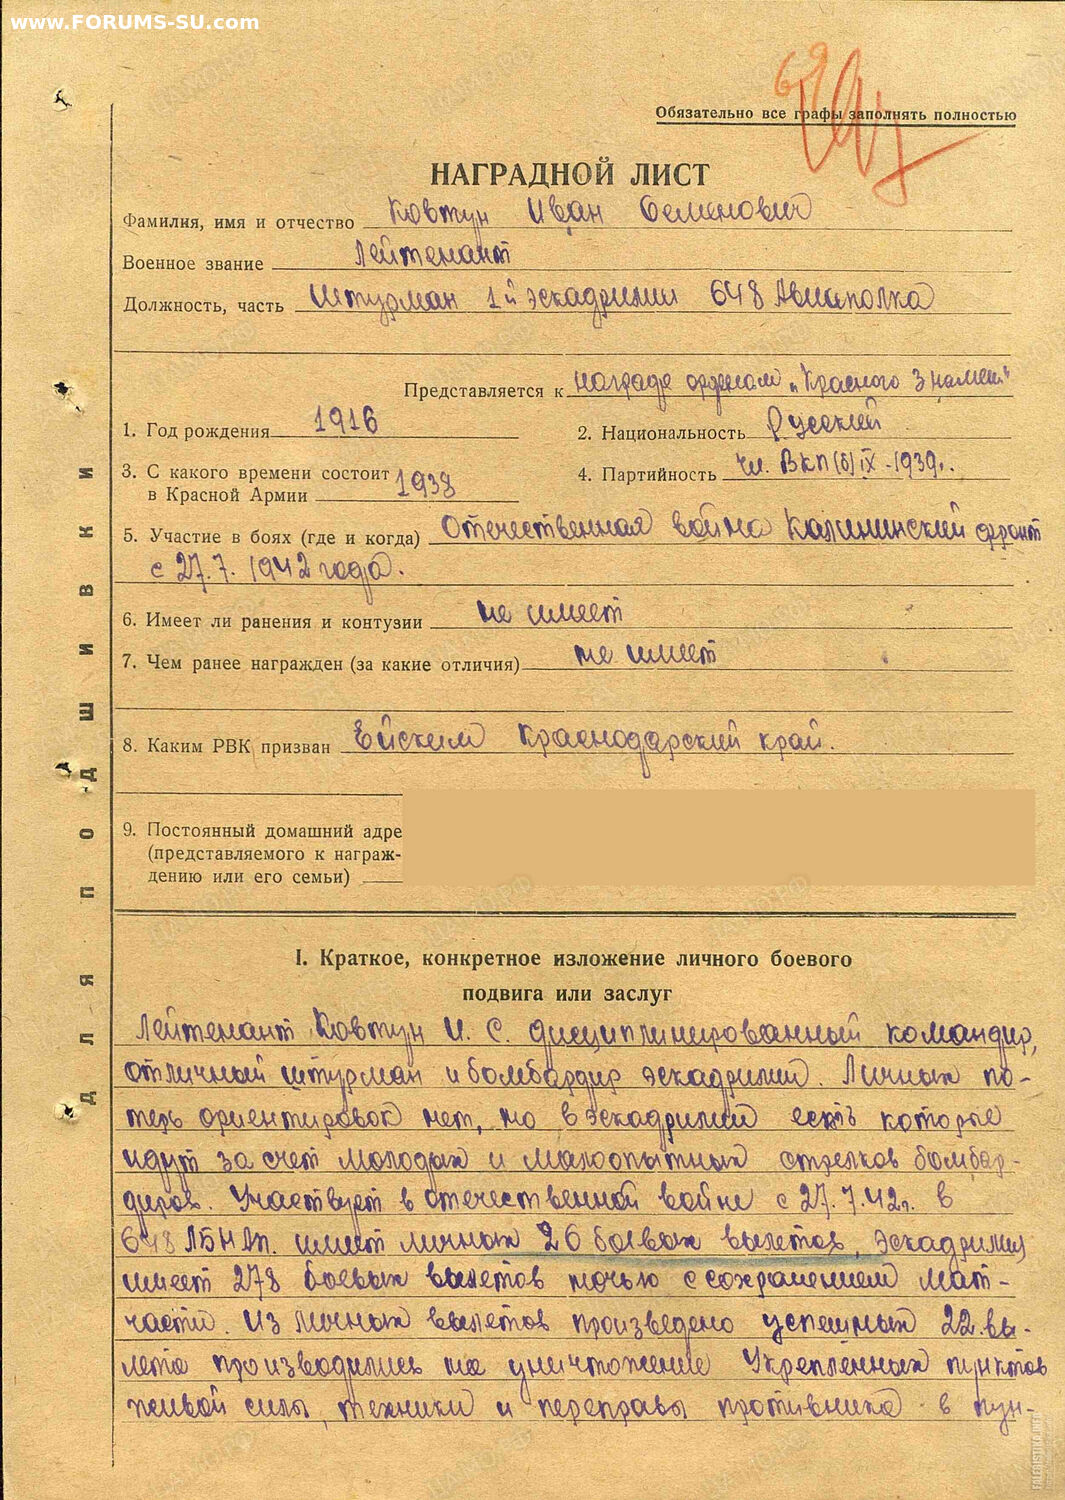 www.FORUMS-SU.com
69
Обязательно все графы заполнять полностью
НАГРАДНОЙ ЛИСТ
Фамилия, имя и отчество Ковтун Иван Семенович
Военное звание Лейтенант
Должность, часть Штурман 1й эскадрилии 648 Авиаполка
Представляется к награде орденом „Красного Знамени"
1. Год рождения 1916
2. Национальность Русский
3. С какого времени состоит
в Красной Армии 1938
4. Партийность чл. ВКП(б) IX-1939г.
5. Участие в боях (где и когда) Отечественная война Калининский фронт
с 27.7. 1942 года.
6. Имеет ли ранения и контузии не имеет
7. Чем ранее награжден (за какие отличия) не имеет
8. Каким РВК призван Ейским Краснодарский край.
9. Постоянный домашний адре
(представляемого к награж-
дению или его семьи)
ДЛЯ ПОДШИВКИ
I. Краткое, конкретное изложение личного боевого
подвига или заслуг
Лейтенант Ковтун И. С. дисциплинированный командир,
отличный штурман и бомбардир эскадрилии. Личных по-
терь ориентировок нет, но в эскадрилии есть которые
идут за счет молодых и малоопытных стрелков бомбар-
диров. Участвует в отечественной войне с 27.7.42г. в
648 ЛБНАп. имеет личных 26 боевых вылетов, эскадрилия
имеет 278 боевых вылетов ночью с сохранением мат-
части. Из личных вылетов произведено успешных 22 вы-
лета производились на уничтожение Укрепленных пунктов
живой силы, техники и переправы противника в пун-
FALERISTIKA.INFO